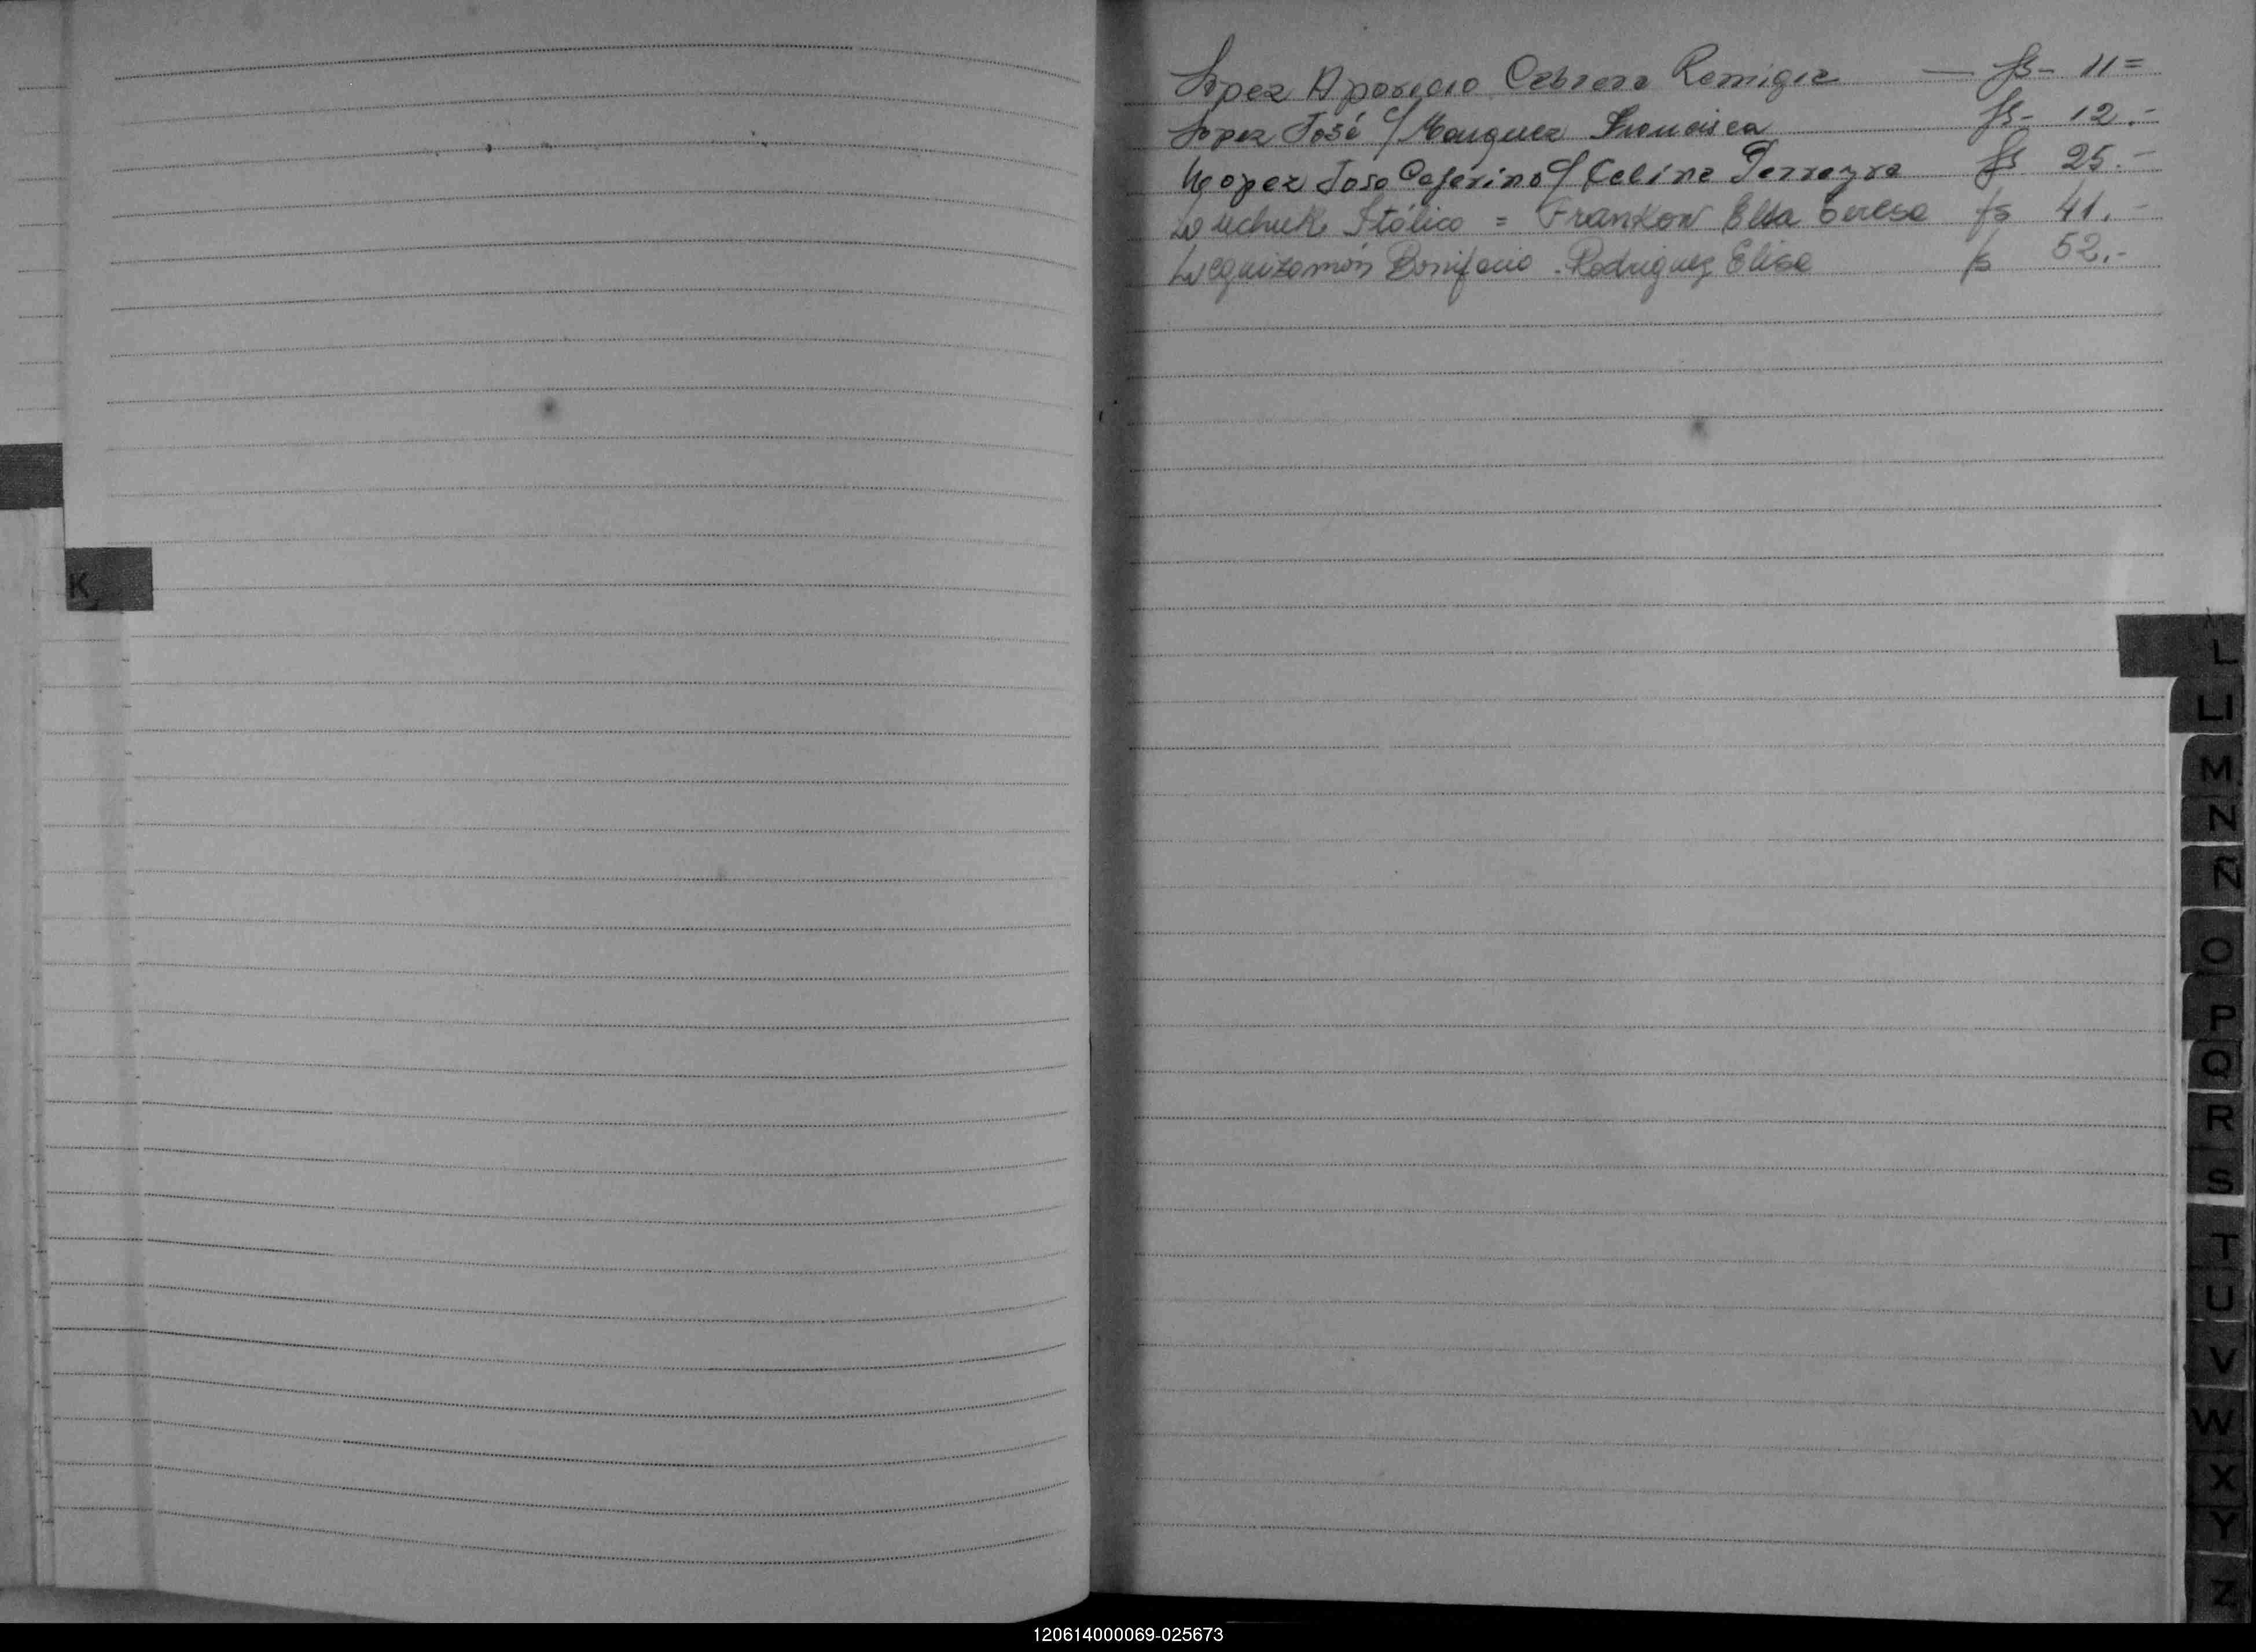 Lopez Aparicio Cabrera Remigia — fs- 11=
Lopez José c/ Marquez Francisca fs- 12.-
Lopez José Ceferino c/ Celina Ferreyra fs 25.-
Italico = Frankow Elsa Teresa fs 41.-
Leguizamón Bonifacio - Rodriguez Elisa fs 52.-
K
L
LI
M
N
Ñ
O
P
Q
R
S
T
U
V
W
X
Y
Z
120614000069-025673